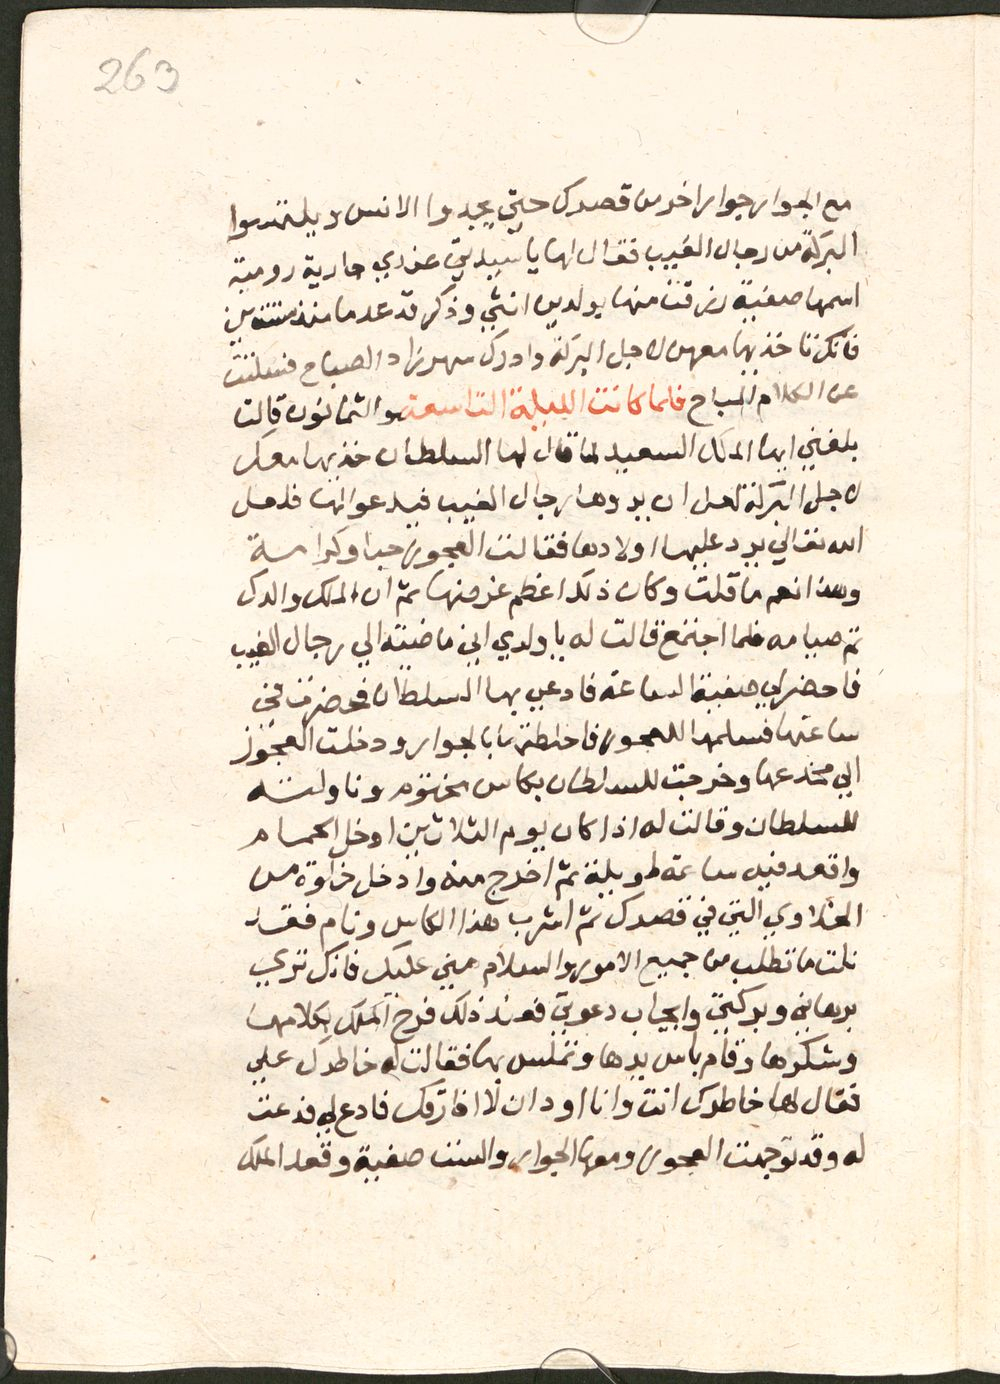 263
مع الجوار جوار اخر من قصرك حتي يجدوا الانس ويلتمسوا
البركة من رجال الغيب فقال لها يا سيدتي عندي جارية رومية
اسمها صفية رزقت منها بولدين انثي وذكر قد عدما منذ سنتين
فانكي تاخذيها معهن لاجل البركة وادرك شهرزاد الصباح فسكتت
عن الكلام المباح فلما كانت الليلة التاسعة والثمانون قالت
بلغني ايها الملك السعيد لما قال لها السلطان خذيها معك
لاجل البركة لعل ان يروها رجال الغيب فيدعوا لها فلعل
الله تعالي يرد عليها اولادها فقالت العجوز حبا وكرامة
وهذا نعم ما قلت وكان ذلك اعظم غرضها ثم ان الملك والدك
تم صيامه فلما اجتمع قالت له يا ولدي اني ماضية الي رجال الغيب
فاحضر لي صفية الساعة فادعي بها السلطان فحضرت في
ساعتها فسلمها للعجوز فاخلطتها بالجوار ودخلت العجوز
الي مخدعها وخرجت للسلطان بكاس مختوم وناولته
للسلطان وقالت له اذا كان يوم الثلاثين ادخل الحمام
واقعد فيه ساعة طويلة ثم اخرج منه وادخل خلوة من
الخلاوي التي في قصرك ثم اشرب هذا الكاس ونام فقد
نلت ما تطلب من جميع الامور والسلام مني عليك فانك تري
برهاني وبركتي وايجاب دعوتي فعند ذلك فرح الملك بكلامها
وشكرها وقام باس يدها وتملس بها فقالت له خاطرك علي
فقال لها خاطرك انت وانا اود ان لا افارقك فادع لي فدعت
له وقد توجهت العجوز ومعها الجوار والست صفية وقعد الملك